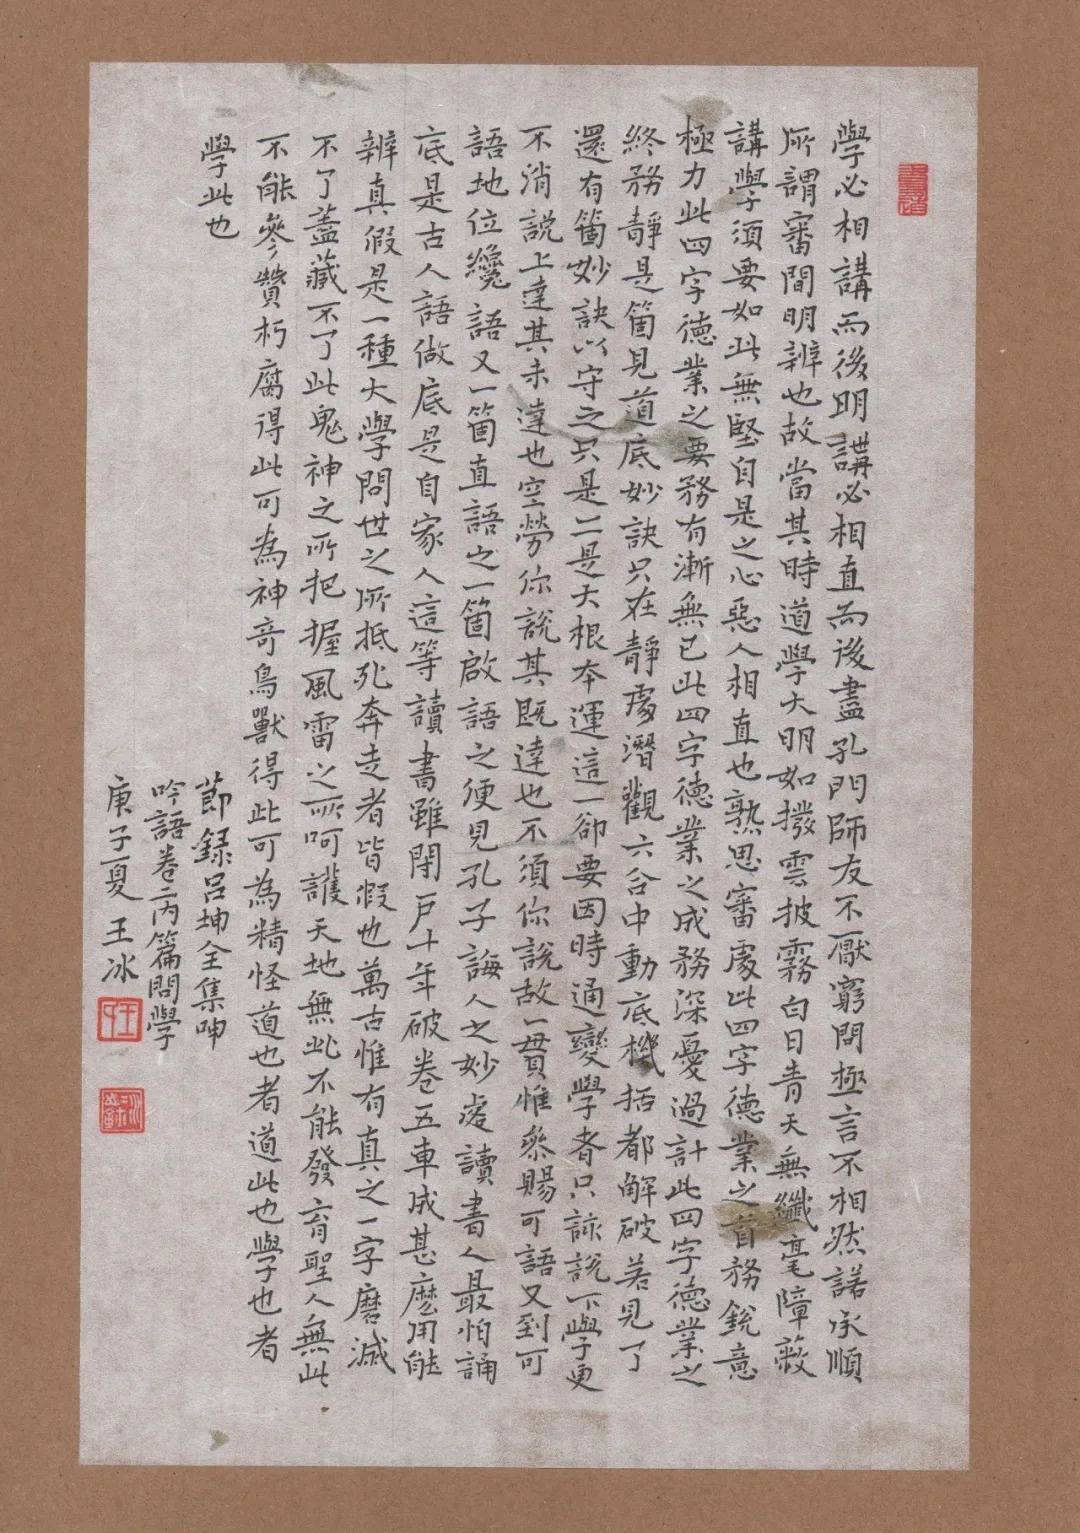 學必相講而後明講必相直而後盡孔門師友不厭窮問極言不相然諾承順
所謂審問明辨也故當其時道學大明如撥雲披霧白日青天無纖毫障蔽
講學須要如此無堅自是之心惡人相直也熟思審處此四字德業之首務銳意
極力此四字德業之要務有漸無已此四字德業之成務深憂過計此四字德業之
終務靜是箇見道底妙訣只在靜處潛觀六合中動底機括都解破若見了
還有箇妙訣以守之只是一是大根本運這一卻要因時通變學者只該說下學更
不消說上達其未達也空勞你說其既達也不須你說故一貫惟參賜可語又到可
語地位纔語又一箇直語之一箇啟語之便見孔子誨人之妙處讀書人最怕誦
底是古人語做底是自家人這等讀書雖閉戶十年破卷五車成甚麼用能
辨真假是一種大學問世之所抵死奔走者皆假也萬古惟有真之一字磨滅
不了蓋藏不了此鬼神之所把握風雷之所呵護天地無此不能發育聖人無此
不能參贊朽腐得此可為神奇鳥獸得此可為精怪道也者道此也學也者
學此也
節錄呂坤全集呻
吟語卷二內篇問學
庚子夏王冰